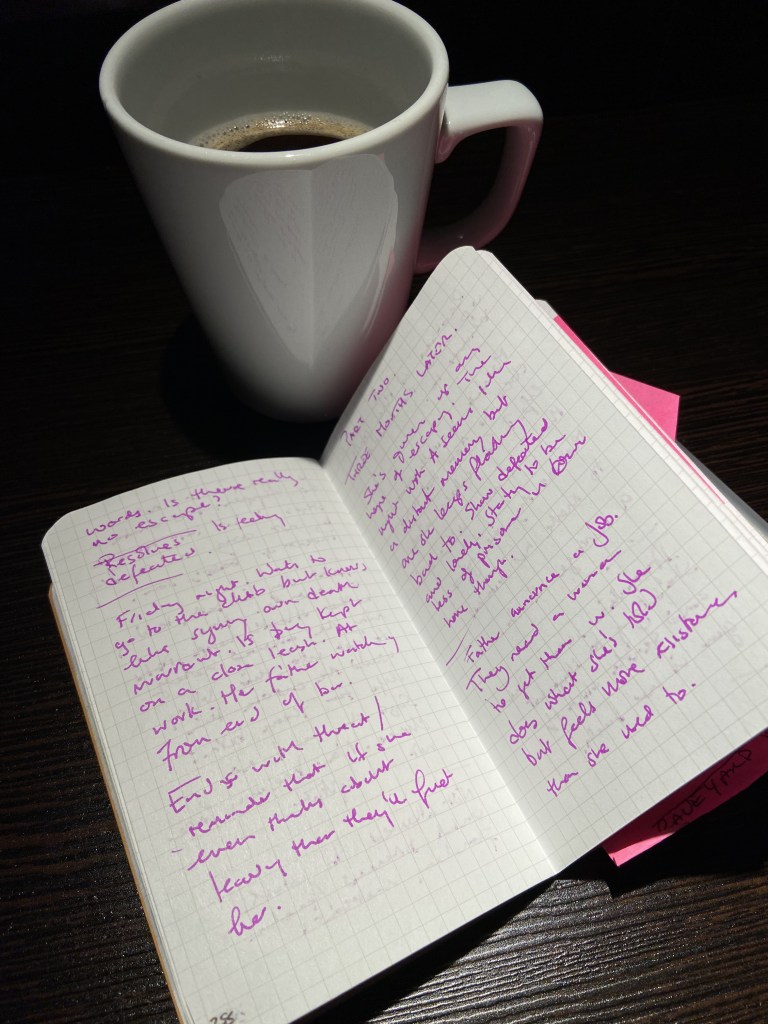 words. Is there really
no escape?
Resolves. Is feeling
defeated.
Friday night. Wants to
go to the club but knows
like signing own death
warrant. Is being kept
on a close leash. At
work. Her father watching
from end of bar.
Ends with threat /
reminder that if she
even thinks about
leaving then they'll find
her.
288
PART TWO.
THREE MONTHS LATER.
She's given up any
hope of escaping. The
night with A seems like
a distant memory but
one she keeps flashing
back to. Show defeated
and lonely. Starting to be
less of prison in
home though.
Father announces a job.
They need a woman
to get them in. She
does what she's told
but feels more resistance
than she used to.